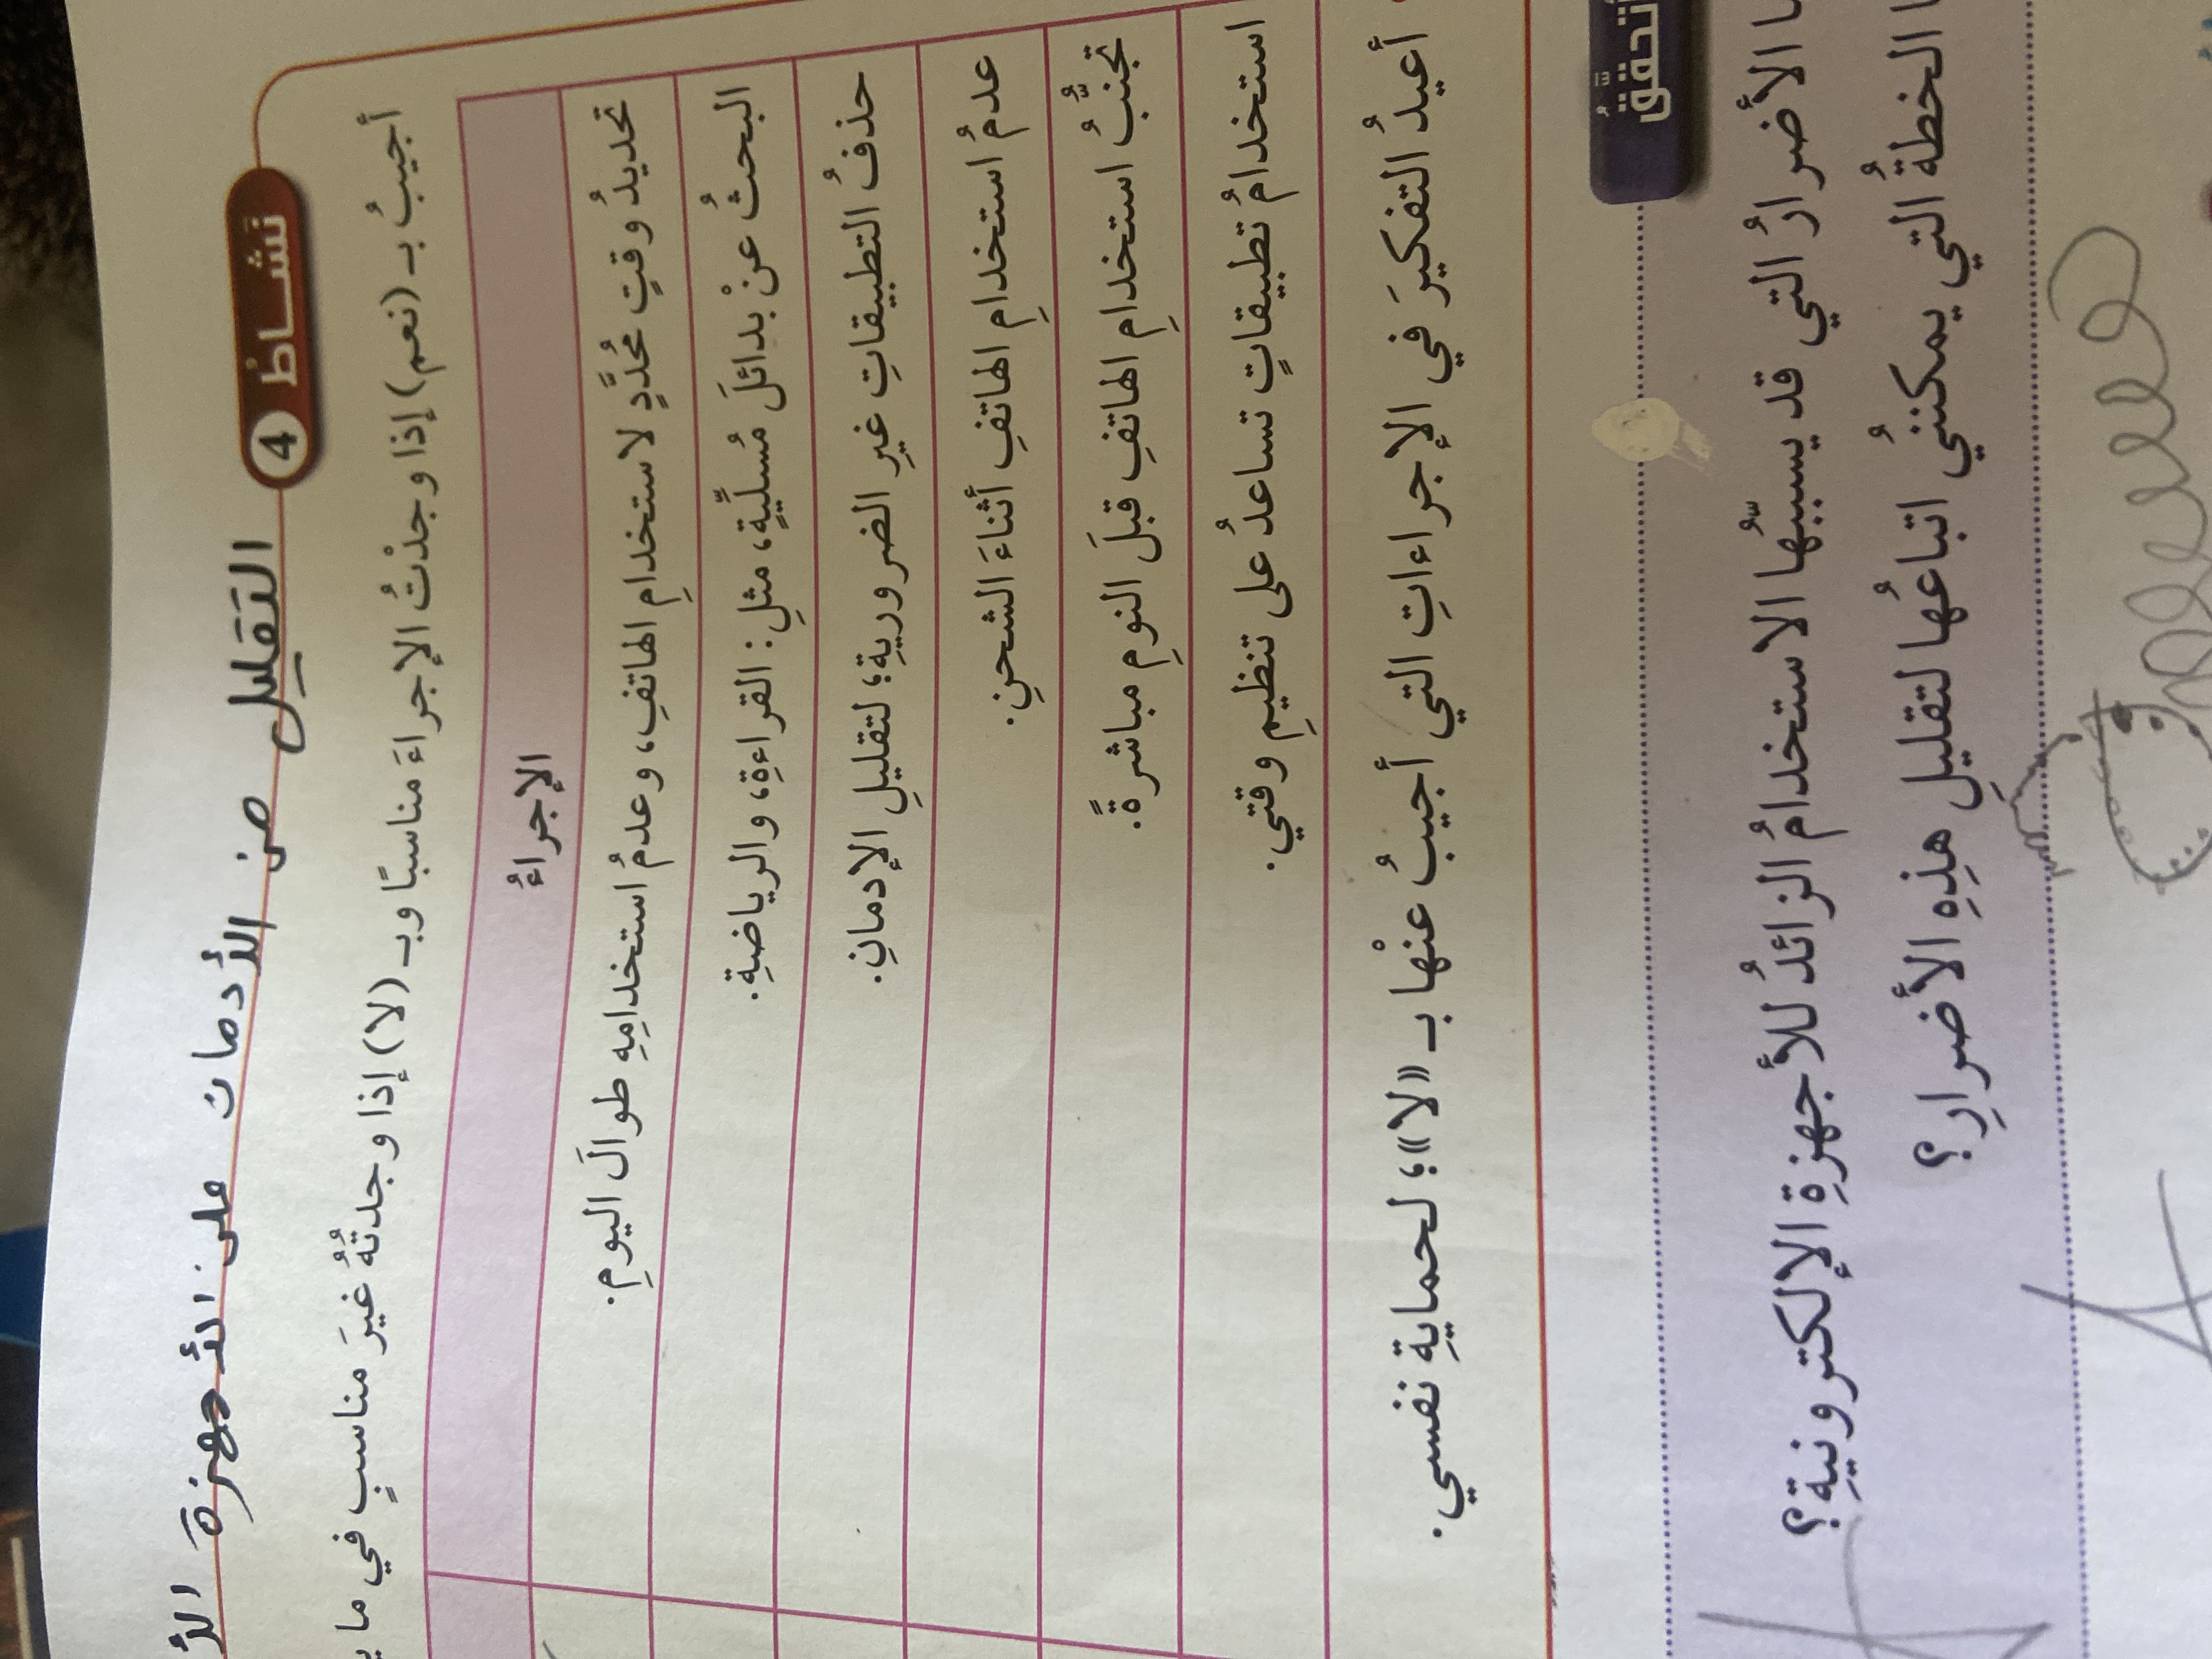 نشاط 4
التقليل من الأدمان على الأجهزة
أجيبُ بـ (نعم) إذا وجدْتُ الإجراءَ مناسبًا وبـ (لا) إذا وجدتُهُ غيرَ مناسبٍ في ما
الإجراءُ
تحديدُ وقتٍ مُحدَّدٍ لاستخدامِ الهاتفِ، وعدمُ استخدامِهِ طوالَ اليومِ.
البحثُ عنْ بدائلَ مُسلِّيَةٍ، مثلِ: القراءةِ، والرياضةِ.
حذفُ التطبيقاتِ غيرِ الضروريةِ؛ لتقليلِ الإدمانِ.
عدمُ استخدامِ الهاتفِ أثناءَ الشحنِ.
تجنبُّ استخدامِ الهاتفِ قبلَ النومِ مباشرةً.
استخدامُ تطبيقاتٍ تساعدُ على تنظيمِ وقتي.
أعيدُ التفكيرَ في الإجراءاتِ التي أجيبُ عنْها بـ «لا»؛ لحمايةِ نفسي.
أتحقَّقُ
الأضرارُ التي قد يسببُّها الاستخدامُ الزائدُ للأجهزةِ الإلكترونيةِ؟
الخطةُ التي يمكنُني اتباعُها لتقليلِ هذِهِ الأضرارِ؟